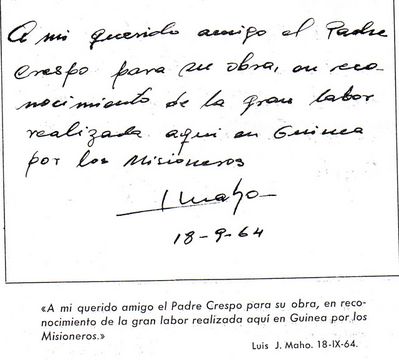 A mi querido amigo el Padre
Crespo para su obra, en reco-
nocimiento de la gran labor
realizada aqui en Guinea
por los Misioneros
L Maho
18-9-64
«A mi querido amigo el Padre Crespo para su obra, en reco-
nocimiento de la gran labor realizada aquí en Guinea por los
Misioneros.»
Luis J. Maho. 18-IX-64.